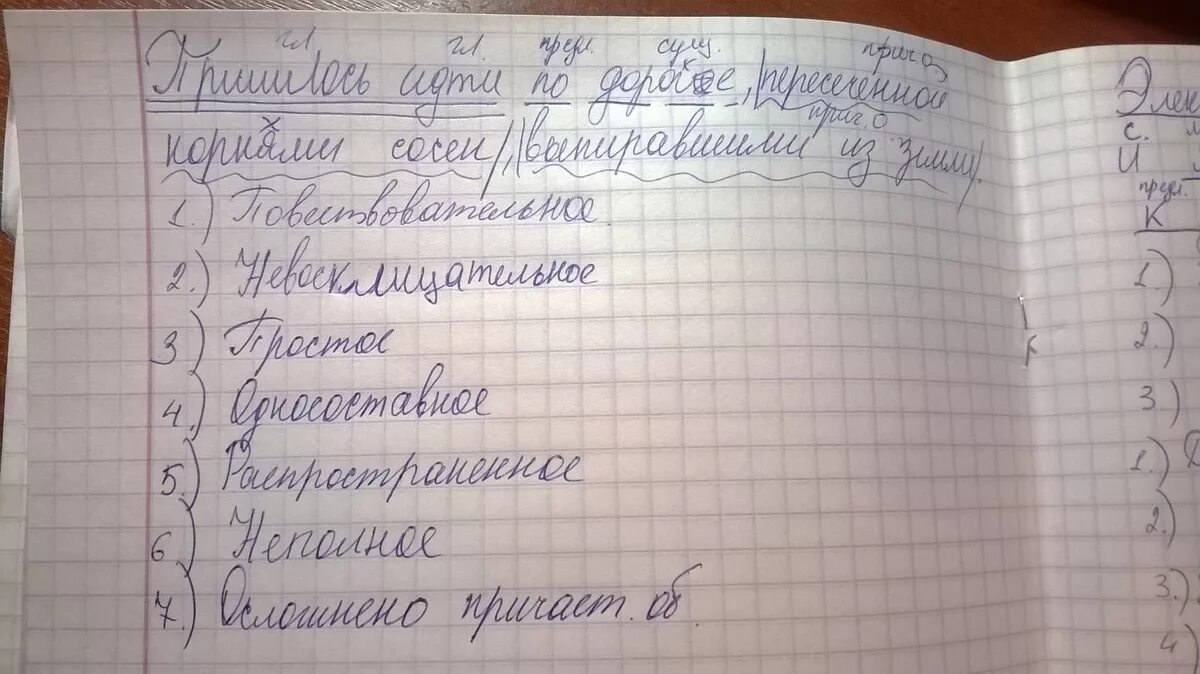 гл. гл. предл. сущ. прич.о
Пришлось идти по дорожке, пересечённой
прич.о
корнями сосен, выпиравшими из земли.
1.) Повествовательное
2.) Невосклицательное
3) Простое
4.) Односоставное
5.) Распространенное
6.) Неполное
7.) Осложнено причаст. об.
Элек
с.
и
предл.
К
1.)
2.)
3.)
1.)
2.)
3.)
4)